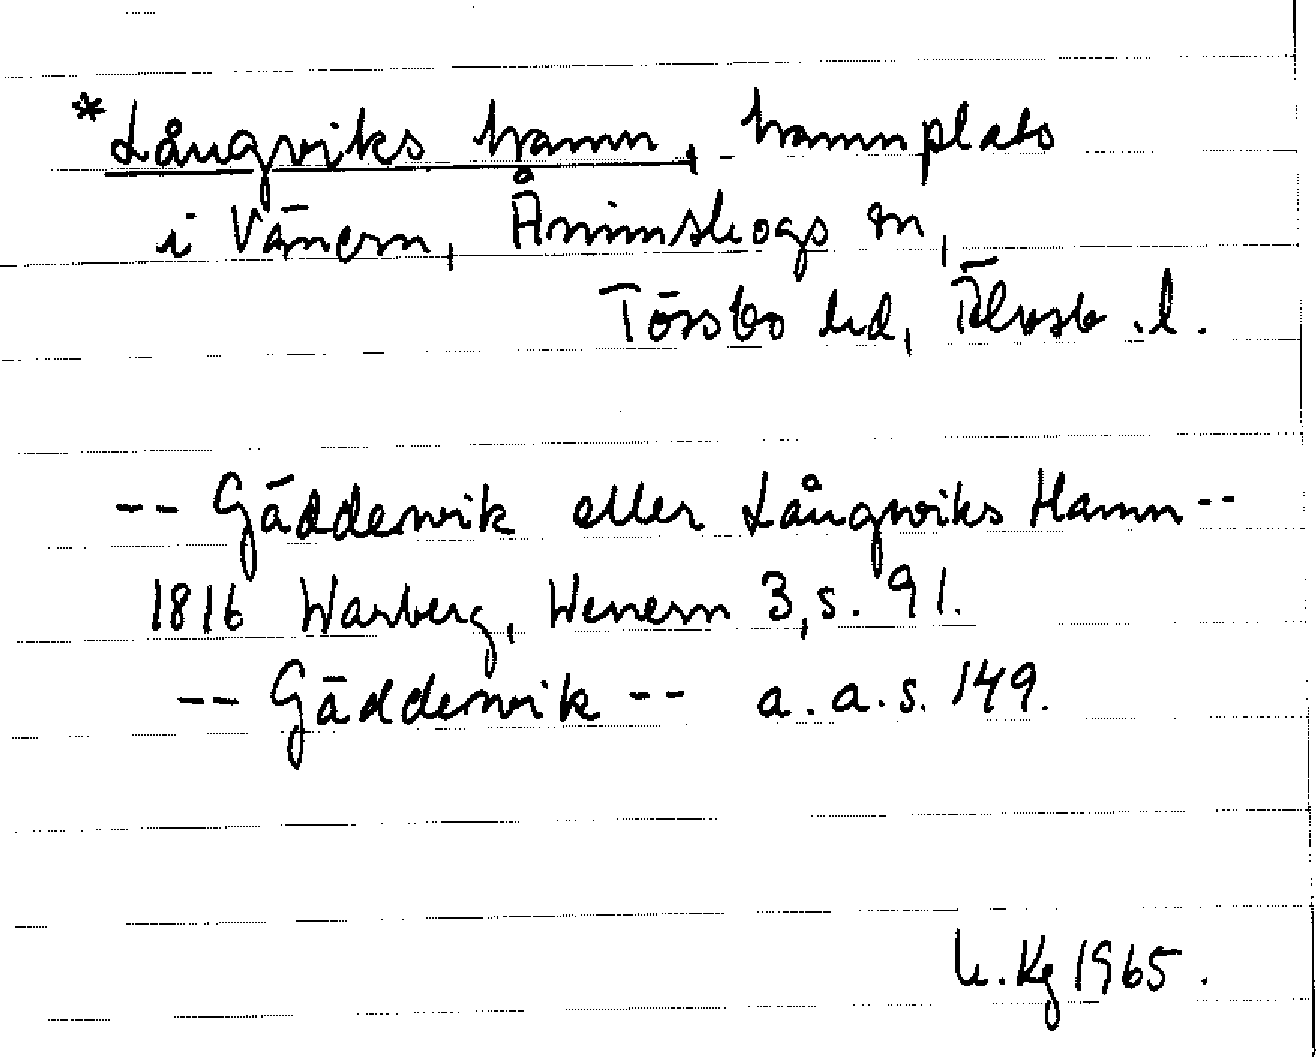 *Långviks hamn, hamnplats
i Vänern, Ånimskogs sn,
Tössbo hd, Älvsb. l.
-- Gäddervik eller Långwiks Hamn --
1816 Warberg, Wenern 3, s. 91.
-- Gäddervik -- a.a.s. 149.
Kg 1965.